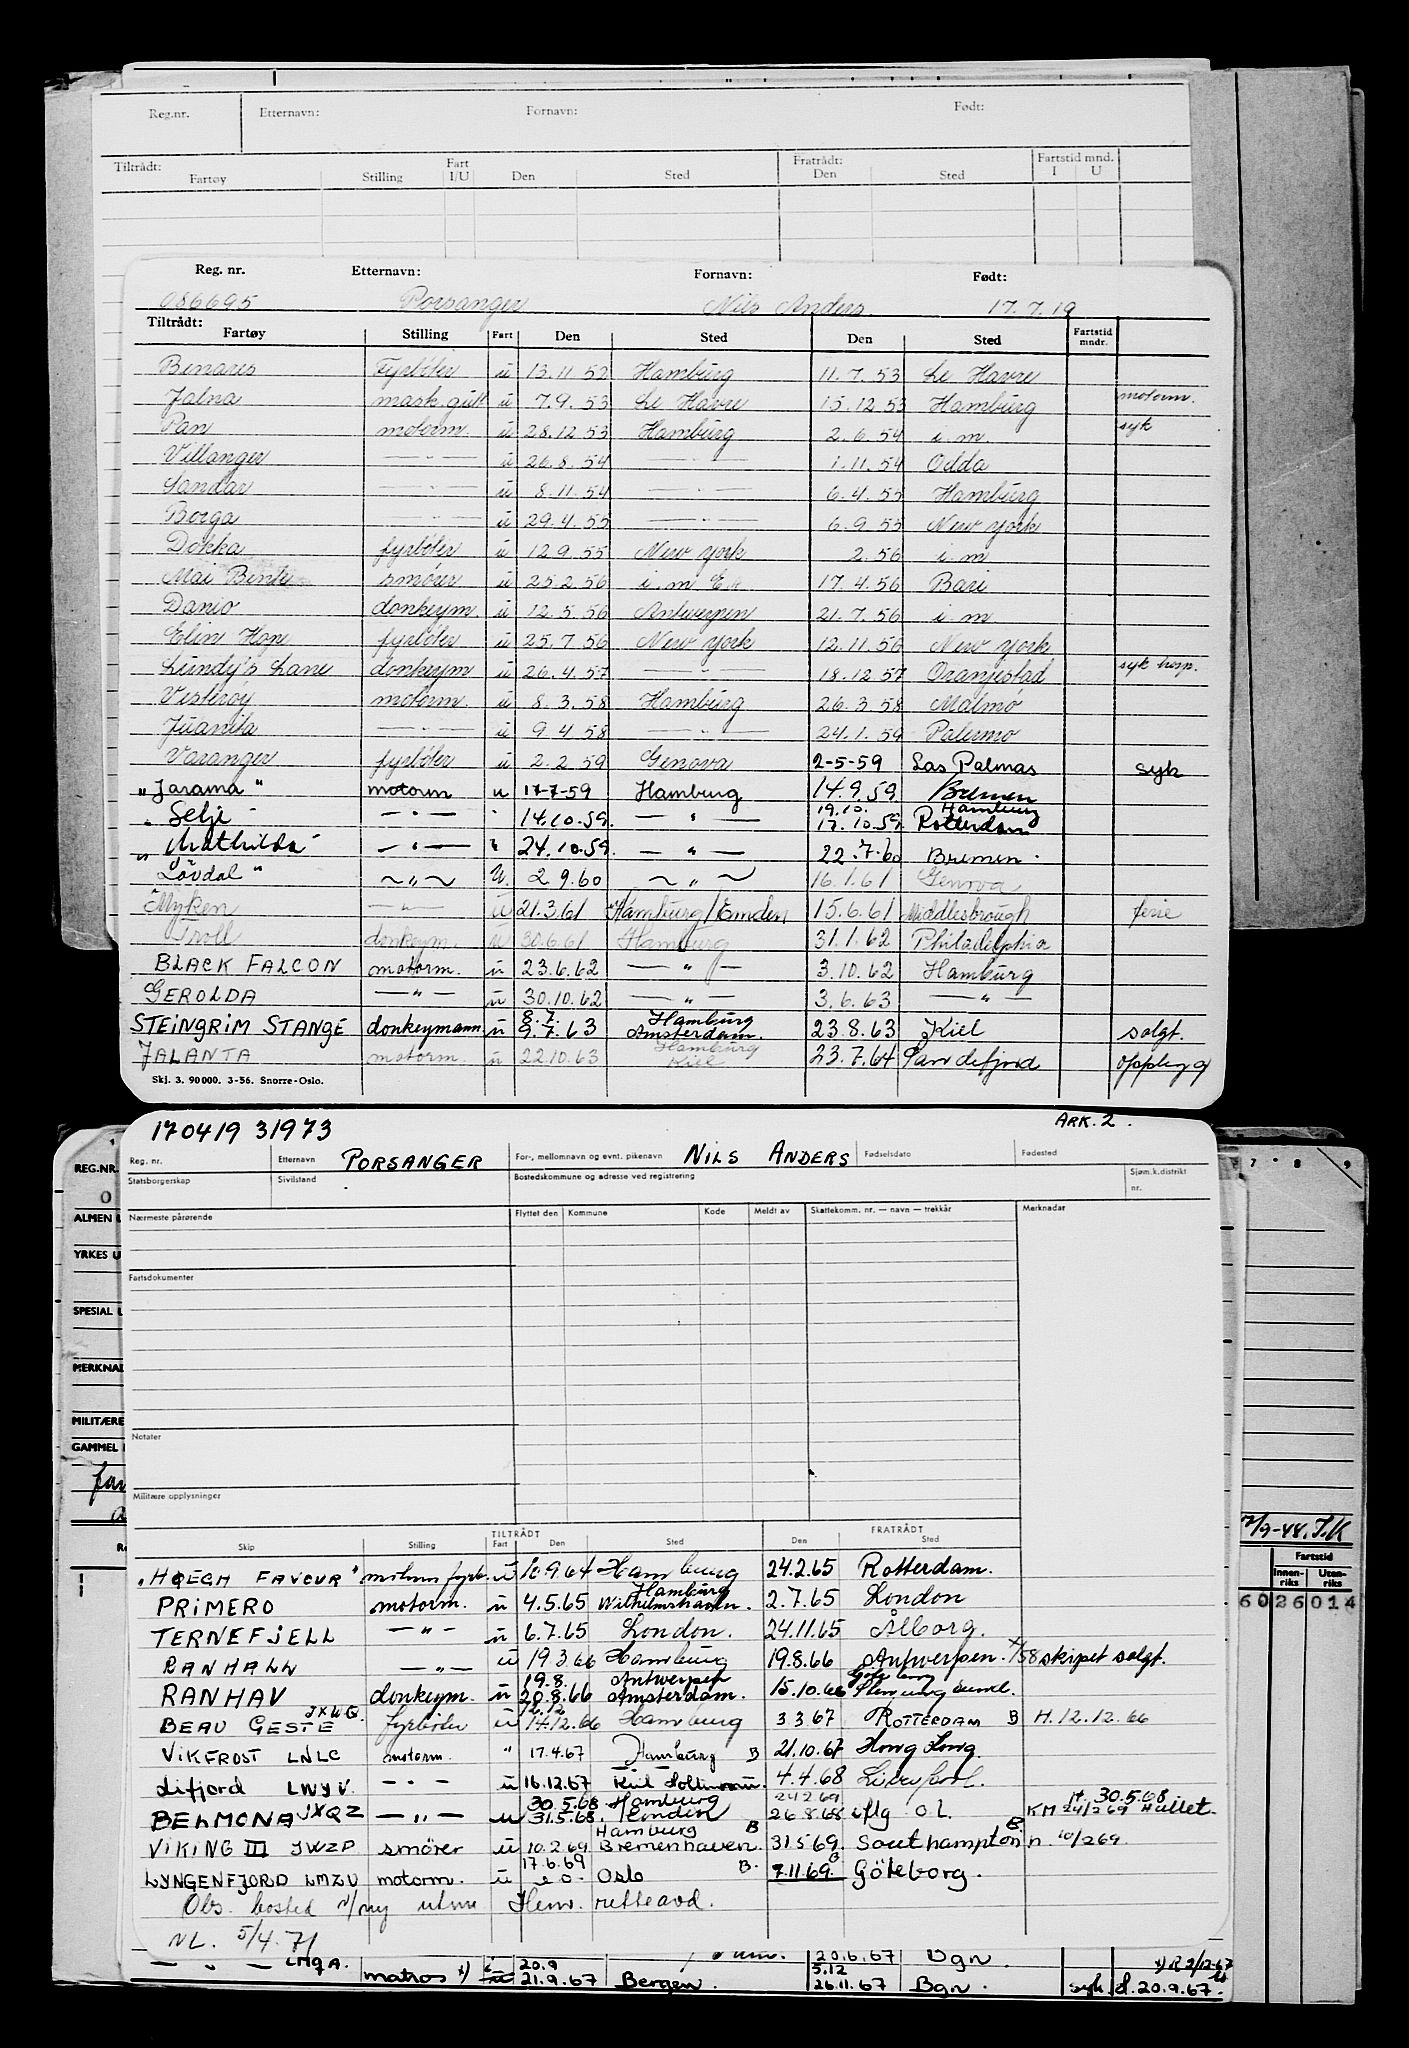 Reg.nr. Etternavn: Fornavn: Født:
Tiltrådt: Fart Fratrådt: Fartstid mnd.
Fartøy Stilling I/U Den Sted Den Sted I U
Reg. nr. Etternavn: Fornavn: Født:
086695 Porsanger Nils Anders 17.7.19
Tiltrådt: Fartøy Stilling Fart Den Sted Den Sted Fartstid mndr.
Benares Fyrbøter u 13.11.52 Hamburg 11.7.53 Le Havre
Jalna mask.gutt u 7.9.53 Le Havre 15.12.53 Hamburg motorm.
Pan motorm. u 28.12.53 Hamburg 2.6.54 i.m. syk
Villanger — " — u 26.8.54 — " — 1.11.54 Odda
Sandar — " — u 8.11.54 — " — 6.4.55 Hamburg
Borga — " — u 29.4.55 — " — 6.9.55 New York
Dokka fyrbøter u 12.9.55 New York 2.56 i.m
Mai Bente smører u 25.2.56 i.m 17.4.56 Bari
Danio donkeym. u 12.5.56 Antwerpen 21.7.56 i.m
Elin Hop fyrbøter u 25.7.56 New York 12.11.56 New York
Lundy's Lane donkeym u 26.4.57 — " — 18.12.57 Oranjestad syk hosp.
Vesterøy motorm. u 8.3.58 Hamburg 26.3.58 Malmø
Juanita — " — u 9.4.58 — " — 24.1.59 Palermo
Varanger fyrbøter u 2.2.59 Genova 2-5-59 Las Palmas syk
" Jarama " motorm u 17-7-59 Hamburg 14.9.59 Bremen
19.10. Hamburg
" Selje " — " — " 14.10.59. — " — 17.10.59 Rotterdam
" Mathilda " — " — " 24.10.59. — " — 22.7.60 Bremen.
" Lövdal " — " — u. 2.9.60 — " — 16.1.61 Genova
Myken — " — u 21.3.61 Hamburg/Emden 15.6.61 Middlesbrough ferie
Troll donkeym. u 30.6.61 Hamburg 31.1.62 Philadelphia
BLACK FALCON motorm. u 23.6.62 — " — 3.10.62 Hamburg
GEROLDA — " — u 30.10.62 — " — 3.6.63 — " —
8.7. Hamburg
STEINGRIM STANGE donkeymann u 9.7.63 Amsterdam. 23.8.63 Kiel solgt.
Hamburg
JALANTA motorm. u 22.10.63 Kiel 23.7.64 Sandefjord opplegg
Skj. 3. 90000. 3-56. Snorre-Oslo.
170419 31973 ARK. 2.
Reg. nr. Etternavn PORSANGER For-, mellomnavn og evnt. pikenavn NILS ANDERS Fødselsdato Fødested
Statsborgerskap Sivilstand Bostedskommune og adresse ved registrering Sjøm.k.distrikt nr.
Nærmeste pårørende Flyttet den Kommune Kode Meldt av Skattekomm. nr. — navn — trekkår Merknadar
Fartsdokumenter
Notater
Militære opplysninger
TILTRÅDT FRATRÅDT
Skip Stilling Fart Den Sted Den Sted
"HØEGH FAVOUR" u 10.9.64 Hamburg 24.2.65 Rotterdam.
Hamburg
PRIMERO motorm. u 4.5.65 Wilhelmshaven. 2.7.65 London
TERNEFJELL — " — u 6.7.65 London. 24.11.65 Ålborg.
RANHALL — " — u 19.3.66 Hamburg 19.8.66 Antwerpen. skipet solgt.
19.8. Antwerpen
RANHAV donkeym. u 20.8.66 Amsterdam. 15.10.66
JXUG. 12.12
BEAU GESTE fyrbøter u 14.12.66 Hamburg 3.3.67 ROTTERDAM B H.12.12.66
VIKFROST LNLC motorm. " 17.4.67 Hamburg B 21.10.67 Hong Kong.
Lifjord LWYV. — " — u 16.12.67 Kiel Holtenau. 4.4.68 Liverpool.
30.5.68 Hamburg 24269 H. 30.5.68
BELMONA JXQZ — " — u 31.5.68. London 26.8.68 oflg OL. KM 24/2 69 Hullet.
Hamburg B
VIKING III JWZP smører u 10.2.69 Bremenhaven. 31.5.69. Southampton B n. 10/269.
17.6.69
LYNGENFJORD LMZU motorm. u e o. Oslo B. 7.11.69. B Göteborg.
Obs. bosted v/ny utm Henv. retteavd.
NL. 5/4.71
— " — LMQA. 20.9 20.6.67 Bgn X) R 2/12-67
5.12
matros x) u 21.9.67 Bergen. 26.11.67 Bgn. syk. d. 20.9.67.
REG.NR.
0
ALMEN
YRKES U
SPECIAL
MERKNAD
MILITÆRE
GAMMEL
7 8 9
7/9-44. J.K
Fartstid
Innen-riks Uten-riks
6026014